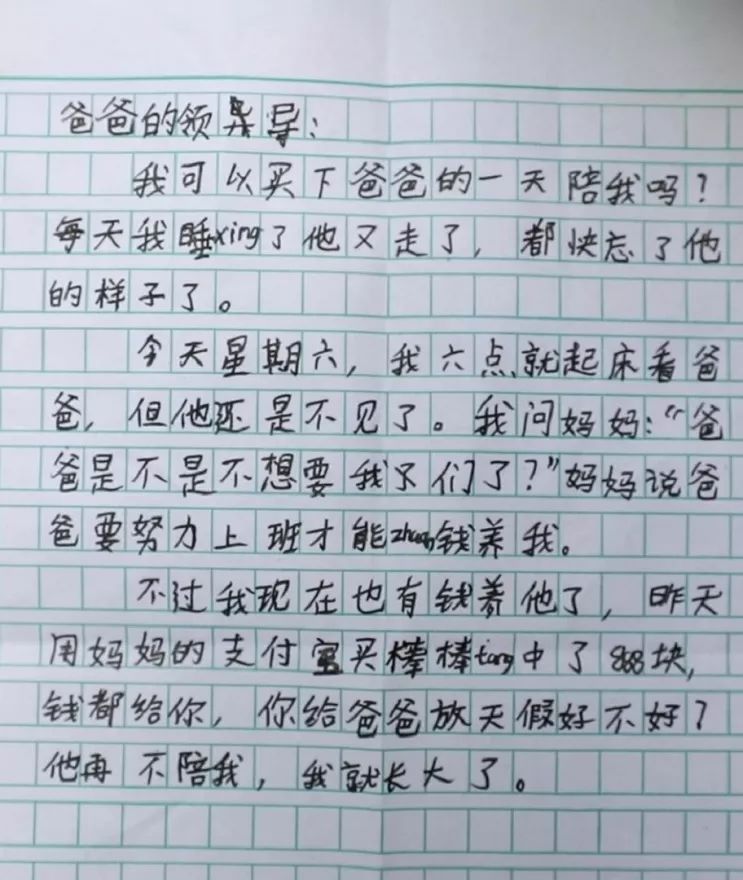 爸爸的领导：
我可以买下爸爸的一天陪我吗？
每天我睡xing了他又走了，都快忘了他
的样子了。
今天星期六，我六点就起床看爸
爸，但他还是不见了。我问妈妈：“爸
爸是不是不想要我们了？”妈妈说爸
爸要努力上班才能zhuan钱养我。
不过我现在也有钱养他了，昨天
用妈妈的支付宝买棒棒tang中了888块，
钱都给你，你给爸爸放天假好不好？
他再不陪我，我就长大了。